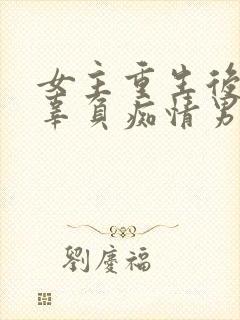 女主重生後
辜負痴情男
劉慶福